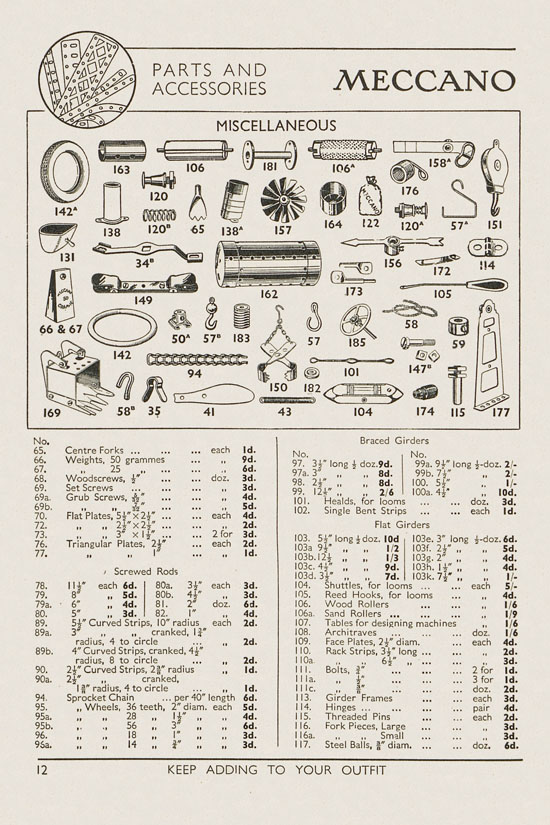 PARTS AND
ACCESSORIES
MECCANO
MISCELLANEOUS
163 106 181 106A 158A
176
142A 138 120 120B 65 138A 157 164 122 120A 57A 151
131 34B 156 172 114
149 162 173 105
66 & 67 142 50A 57B 183 57 185 58 59
94 150 101 147B
182
169 58B 35 41 43 104 174 115 177
No.
65. Centre Forks ... ... ... each 1d.
66. Weights, 50 grammes ... „ 9d.
67. „ 25 „ ... ... „ 6d.
68. Woodscrews, ½" ... ... doz. 3d.
69. Set Screws ... ... ... „ 4d.
69a. Grub Screws, „ 4d.
69b. „ „ 5d.
70. Flat Plates, 5½"×2½" ... each 4d.
72. „ „ 2½"×2½" ... „ 2d.
73. „ „ 3" ×1½" ... 2 for 3d.
76. Triangular Plates, 2½" ... each 2d.
77. „ „ 1" ... „ 1d.
Screwed Rods
78. 11½" each 6d. 80a. 3½" each 3d.
79. 8" „ 5d. 80b. 4½" „ 3d.
79a. 6" „ 4d. 81. 2" doz. 6d.
80. 5" „ 3d. 82. 1" „ 4d.
89. 5½" Curved Strips, 10" radius each 2d.
89a. 3" „ „ cranked, 1¾"
radius, 4 to circle ... „ 2d.
89b. 4" Curved Strips, cranked, 4½"
radius, 8 to circle ... „ 2d.
90. 2½" Curved Strips, 2⅜" radius „ 1d.
90a. 2½" „ „ cranked,
1⅜" radius, 4 to circle ... „ 1d.
94. Sprocket Chain ... per 40" length 6d.
95. „ Wheels, 36 teeth, 2" diam. each 5d.
95a. „ „ 28 „ 1½" „ „ 4d.
95b. „ „ 56 „ 3" „ „ 6d.
96. „ „ 18 „ 1" „ „ 3d.
96a. „ „ 14 „ ¾" „ „ 3d.
Braced Girders
No. No.
97. 3½" long ½ doz. 9d. 99a. 9½" long ½-doz. 2/-
97a. 3" „ „ 8d. 99b. 7½" „ „ 2/-
98. 2½" „ „ 8d. 100. 5½" „ „ 1/-
99. 12½" „ „ 2/6 100a. 4½" „ „ 10d.
101. Healds, for looms ... ... doz. 3d.
102. Single Bent Strips ... ... each 1d.
Flat Girders
103. 5½" long ½ doz. 10d 103e. 3" long ½-doz. 6d.
103a 9½" „ „ 1/2 103f. 2½" „ „ 5d.
103b. 12½" „ „ 1/3 103g. 2" „ „ 4d.
103c. 4½" „ „ 9d. 103h. 1½" „ „ 4d.
103d. 3½" „ „ 7d. 103k. 7½" „ „ 1/-
104. Shuttles, for looms ... ... each 5/-
105. Reed Hooks, for looms ... „ 4d.
106. Wood Rollers ... ... „ 1/6
106a. Sand Rollers ... ... ... „ 1/9
107. Tables for designing machines „ 1/6
108. Architraves ... ... doz. 1/6
109. Face Plates, 2½" diam. ... each 4d.
110. Rack Strips, 3½" long ... „ 2d.
110a. „ „ 6½" „ ... „ 3d.
111. Bolts, ¾" ... ... ... 2 for 1d.
111a. „ ½" ... ... ... 3 for 1d.
111c. „ ⅜" ... ... ... doz. 2d.
113. Girder Frames ... ... each 3d.
114. Hinges ... ... ... pair 4d.
115. Threaded Pins ... ... each 2d.
116. Fork Pieces, Large ... „ 3d.
116a. „ „ Small ... „ 3d.
117. Steel Balls, ⅜" diam. ... doz. 6d.
12 KEEP ADDING TO YOUR OUTFIT